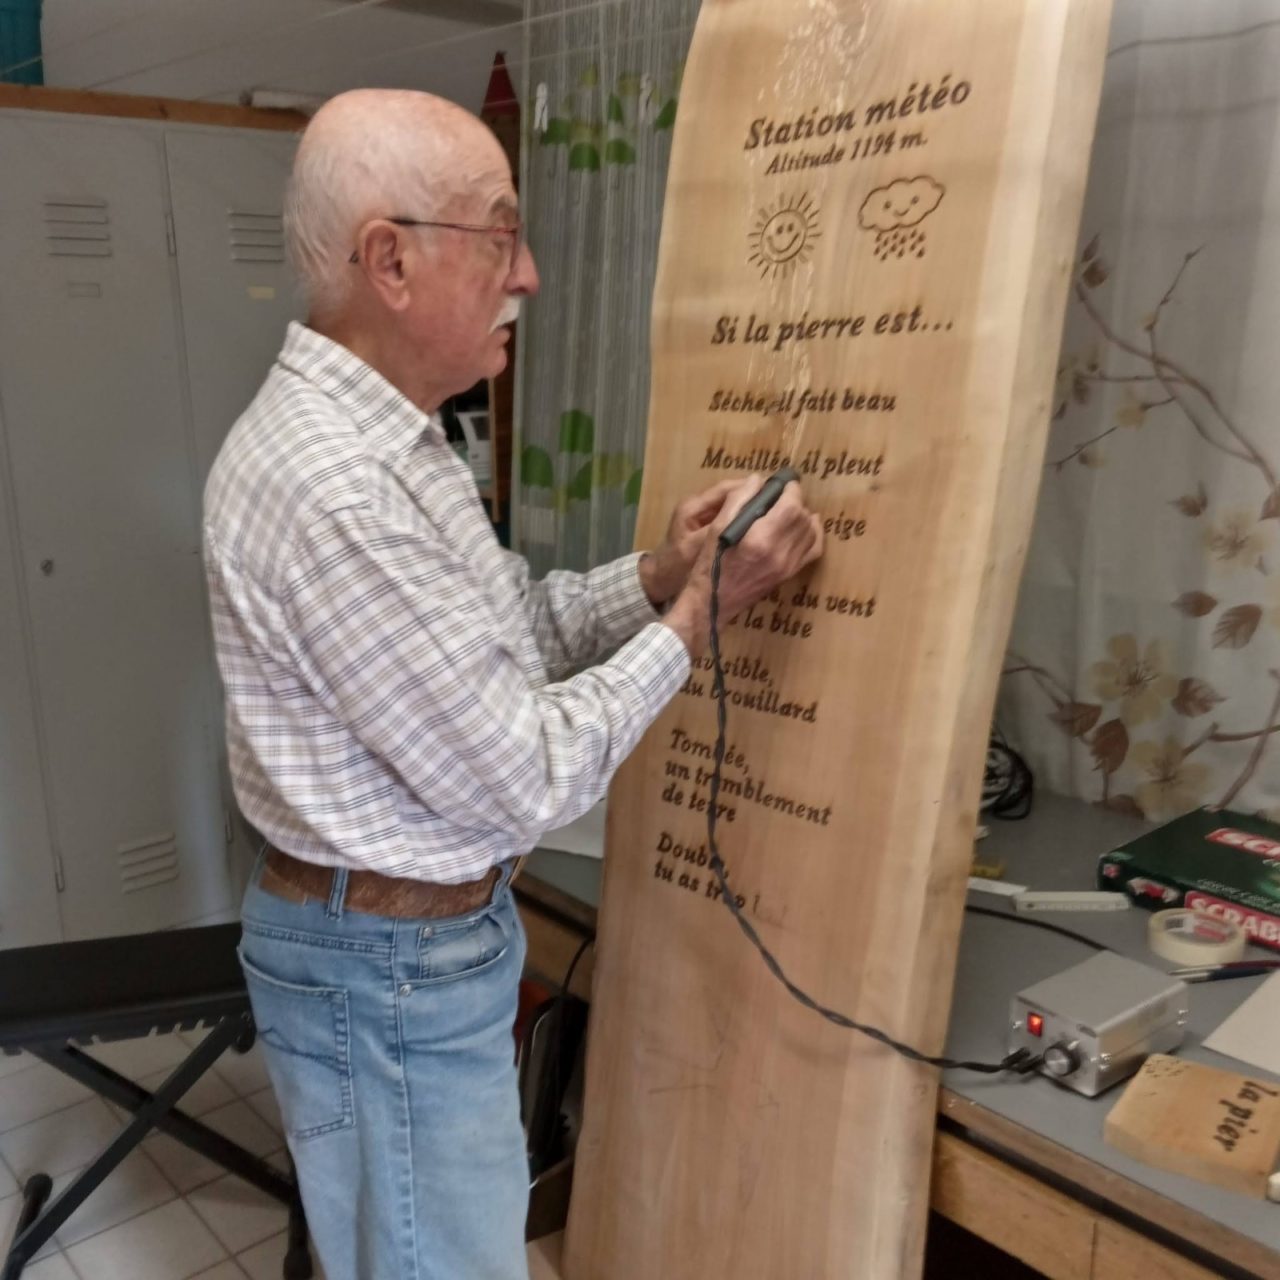 Station météo
Altitude 1194 m.
Si la pierre est...
Sèche, il fait beau
Mouillée, il pleut
eige
du vent
la bise
nvisible,
du brouillard
Tombée,
un tremblement
de terre
Double,
tu as trop
SCRAB
la pier